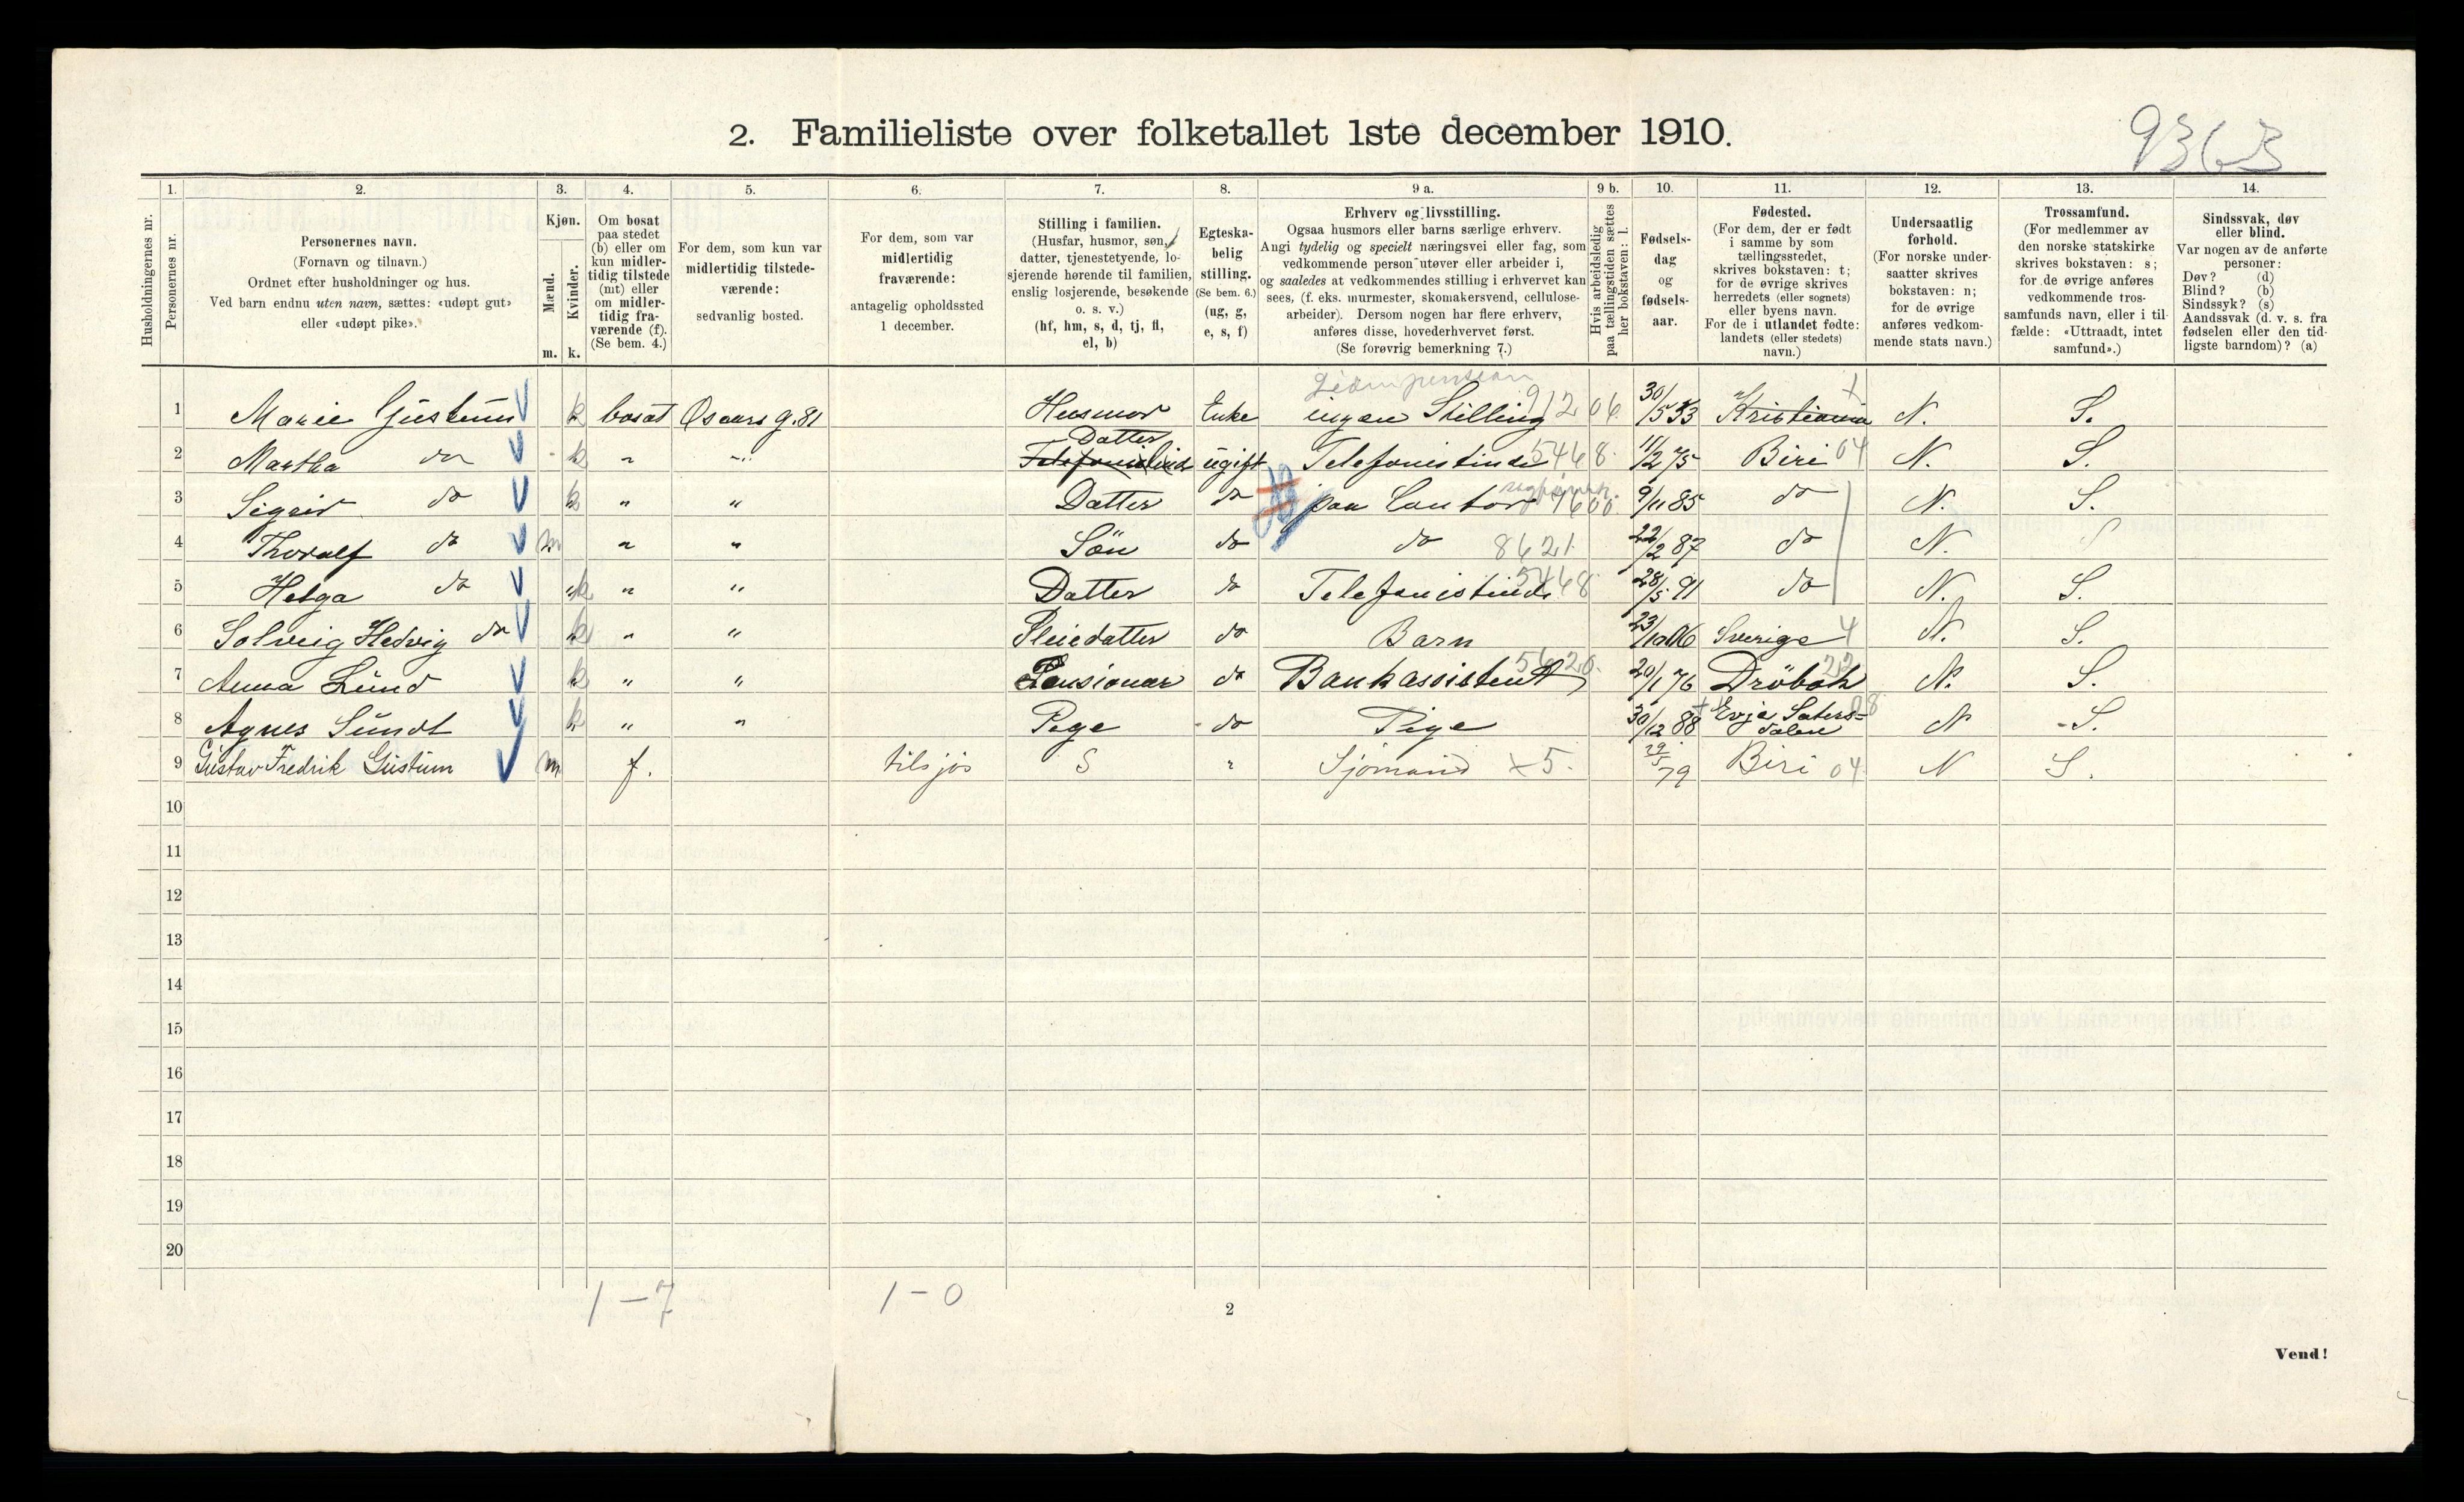 9363
2. Familieliste over folketallet 1ste december 1910.
1. 2. 3. 4. 5. 6. 7. 8. 9 a. 9 b. 10. 11. 12. 13. 14.
Husholdningernes nr.
Personernes nr.
Personernes navn.
(Fornavn og tilnavn.)
Ordnet efter husholdninger og hus.
Ved barn endnu uten navn, sættes: «udøpt gut»
eller «udøpt pike».
Kjøn.
Mænd.
Kvinder.
m. k.
Om bosat
paa stedet
(b) eller om
kun midler-
tidig tilstede
(mt) eller
om midler-
tidig fra-
værende (f).
(Se bem. 4.)
For dem, som kun var
midlertidig tilstede-
værende:
sedvanlig bosted.
For dem, som var
midlertidig
fraværende:
antagelig opholdssted
1 december.
Stilling i familien.
(Husfar, husmor, søn,
datter, tjenestetyende, lo-
sjerende hørende til familien,
enslig losjerende, besøkende
o. s. v.)
(hf, hm, s, d, tj, fl,
el, b)
Egteska-
belig
stilling.
(Se bem. 6.)
(ug, g,
e, s, f)
Erhverv og livsstilling.
Ogsaa husmors eller barns særlige erhverv.
Angi tydelig og specielt næringsvei eller fag, som
vedkommende person utøver eller arbeider i,
og saaledes at vedkommendes stilling i erhvervet kan
sees, (f. eks. murmester, skomakersvend, cellulose-
arbeider). Dersom nogen har flere erhverv,
anføres disse, hovederhvervet først.
(Se forøvrig bemerkning 7.)
Hvis arbeidsledig
paa tællingstiden sættes
her bokstaven: l.
Fødsels-
dag
og
fødsels-
aar.
Fødested.
(For dem, der er født
i samme by som
tællingsstedet,
skrives bokstaven: t;
for de øvrige skrives
herredets (eller sognets)
eller byens navn.
For de i utlandet fødte:
landets (eller stedets)
navn.)
Undersaatlig
forhold.
(For norske under-
saatter skrives
bokstaven: n;
for de øvrige
anføres vedkom-
mende stats navn.)
Trossamfund.
(For medlemmer av
den norske statskirke
skrives bokstaven: s;
for de øvrige anføres
vedkommende tros-
samfunds navn, eller i til-
fælde: «Uttraadt, intet
samfund».)
Sindssvak, døv
eller blind.
Var nogen av de anførte
personer:
Døv? (d)
Blind? (b)
Sindssyk? (s)
Aandssvak (d. v. s. fra
fødselen eller den tid-
ligste barndom)? (a)
1 Marie Gustum k bosat Oscars g. 81 Husmor Enke ingen Stilling 91206 30/5 53 Kristiania N. S.
2 Martha do k " " Telefonistind Datter ugift Telefonistinde 5468 11/2 75 Biri 04 N. S.
3 Sigrid do k " " Datter do paa Contor 9/11 85 do N. S.
4 Thoralf do m " " Sön do do 8621 22/2 87 do N. S
5 Helga do k " " Datter do Telefonistinde 5468 28/5 91 do N. S.
6 Solveig Hedvig do k " " Pleiedatter do Barn 23/10 06 Sverige 4 N. S.
7 Anna Lund k " " Pensionær do Bankassistent 5620 20/1 76 Dröbak 22 N. S.
8 Agnes Sundt k " " Pige do Pige 30/12 88 Evje Sætersdalen N S.
9 Gustav Fredrik Gustum m f. tilsjøs S " Sjömand x5. 29/5 79 Biri 04 N S.
10
11
12
13
14
15
16
17
18
19
20
1 - 7 1 - 0
2
Vend!